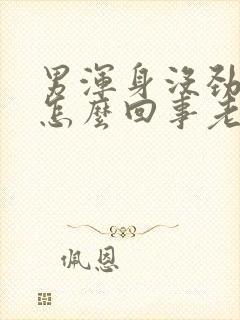 男渾身沒勁
怎麼回事老
佩恩